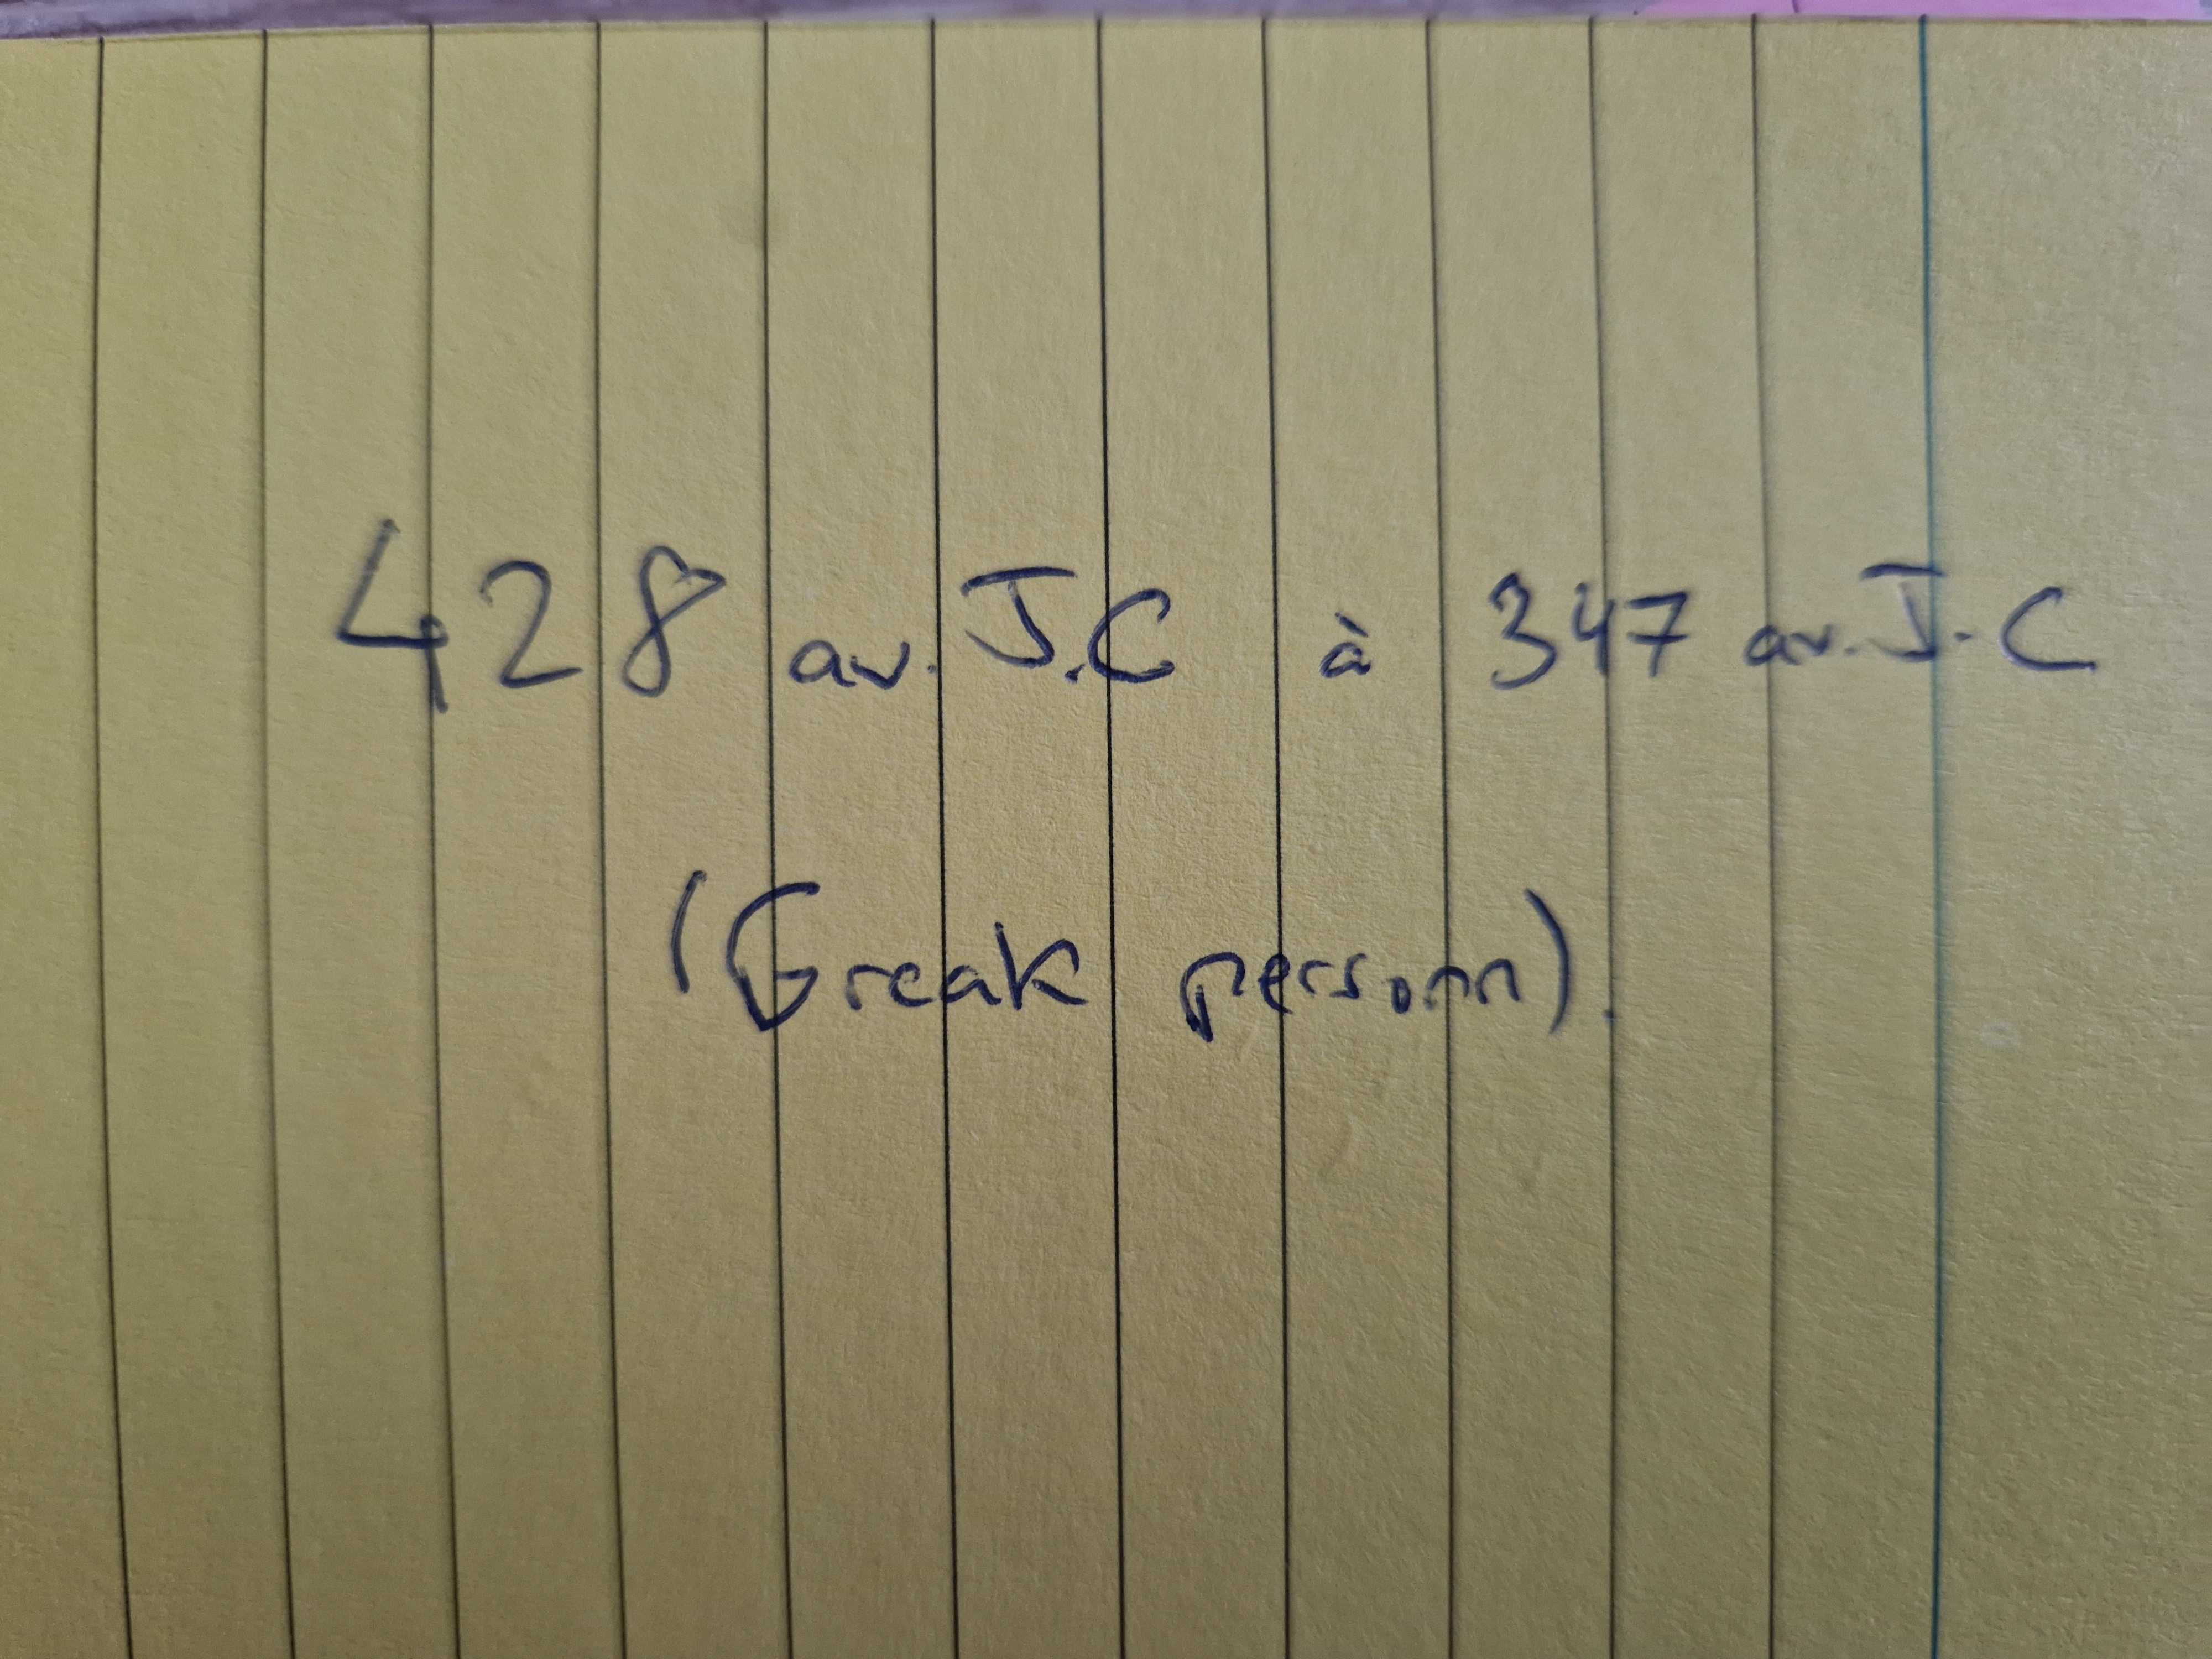 428 av. J.C à 347 av. J. C
(Greak personn).